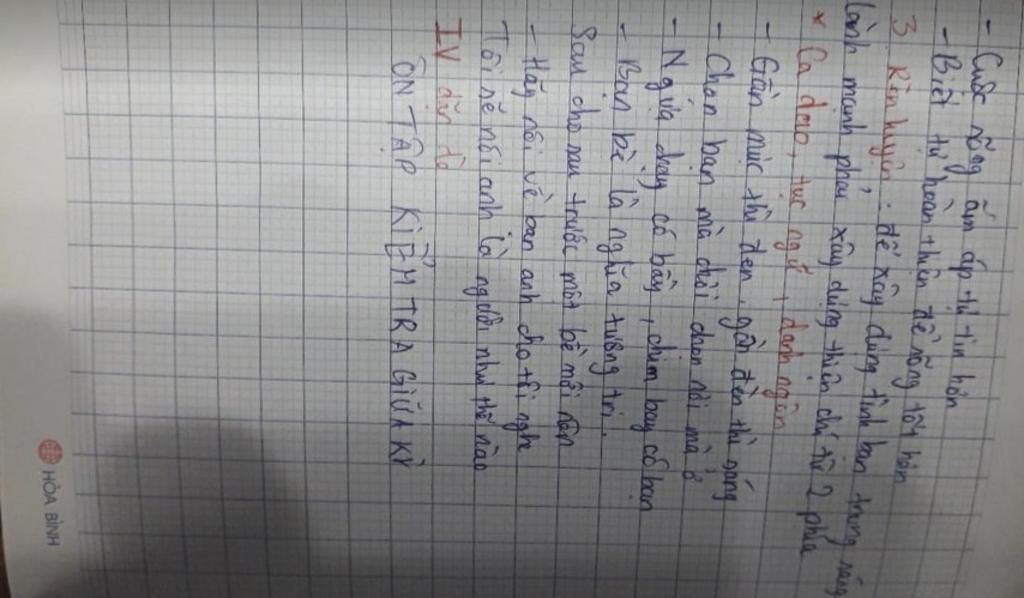 - Cuộc sống ấm áp tự tin hơn
- Biết tự hoàn thiện để sống tốt hơn
3 Rèn luyện : để xây dựng tình bạn trong sáng
lành mạnh phải xây dựng thiện chí từ 2 phía
* Ca dao, tục ngữ, danh ngôn
- Gần mực thì đen, gần đèn thì sáng
- Chọn bạn mà chơi chọn nơi mà ở
- Ngựa chạy có bầy, chim bay có bạn
- Bạn bè là nghĩa tương tri.
Sao cho sau trước một bề mới nên
- Hãy nói về bạn anh cho tôi nghe
Tôi sẽ nói anh là người như thế nào
IV dặn dò
ÔN TẬP KIỂM TRA GIỮA KỲ
HÒA BÌNH